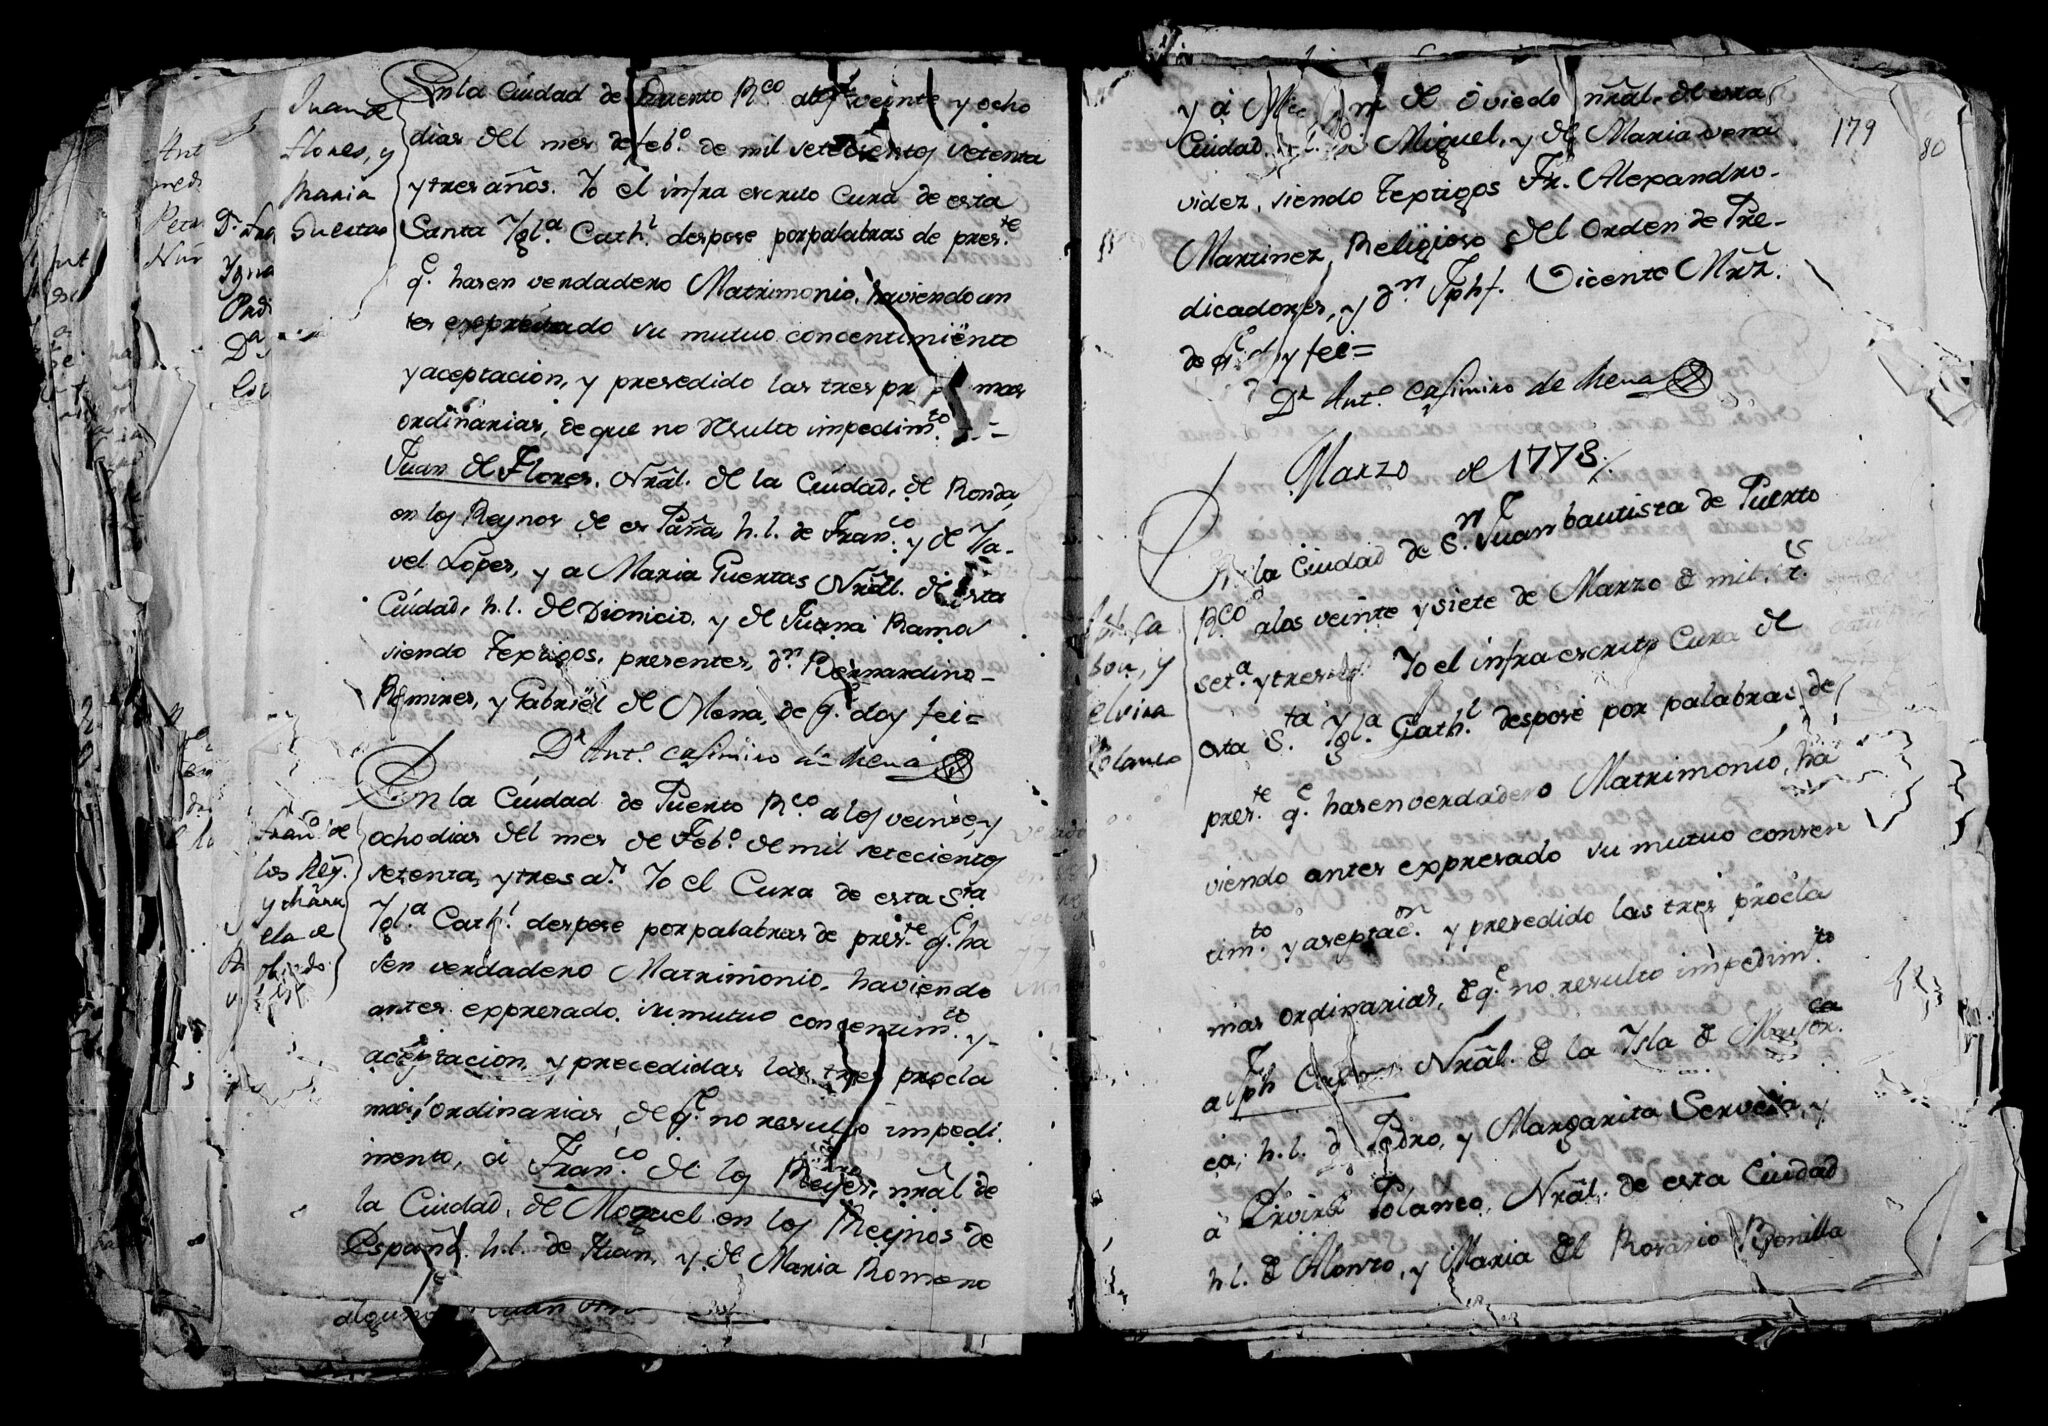 Juan de
Flores, y
Maria
Puertas
En la Ciudad de Puerto Rco. a los veinte y ocho
dias del mes de feb.o de mil setecientos setenta
y tres años. Yo el infra escrito Cura de esta
Santa Ygl.a Cath.l despose por palabras de pres.te
q.e hasen verdadero Matrimonio, haviendo an
tes expresado su mutuo concentimiento
y aceptacion, y presedido las tres pr mas
ordinarias, de que no resulto impedim.to
Juan de Flores, Nrãl. de la Ciudad, de Ronda,
en los Reynos de españa, h.l. de Fran.co y de Ysa-
vel Lopes, y a Maria Puertas Nrãl. de esta
Ciudad, h.l. de Dionicio, y de Juana Ramos
siendo Teptigos, presentes, d.n Bernardino-
Remires, y Gabriel de Mena, de q.e doy fei=
D.r Ant.o Casimiro de Mena
Fran.co de
los Rey.s
y Manu
ela de
Obiedo
En la Ciudad de Puerto Rco a los veinte, y
ocho dias del mes de Feb.o de mil setecientos
setenta, y tres a.s Yo el Cura de esta Sta
Ygl.a Cath.l despose por palabras de pres.te q.e ha
sen verdadero Matrimonio, haviendo
antes expresado, su mutuo consentim.to y-
aceptacion, y precedidas las tres procla
mas ordinarias, de q.e no resulto impedi
mento, a Fran.co de los Reyes, nrãl de
la Ciudad, de Moguel en los Reynos de
España, h.l. de Juan, y de Maria Romero
alguno
179
80
y á de Oviedo nrãl. de esta
Ciudad, Miguel, y de Maria vena
videz, siendo Teptigos Fr. Alexandro-
Martinez, Religioso del Orden de Pre-
dicadores, y d.n Jphf. Vicente Mrz.
de q.e doy fei=
D.r Ant.o Casimiro de Mena
Marzo de 1773
Elvira
Polanco
En la Ciudad de S.n Juan bautista de Puerto
R.co a los veinte y siete de Marzo de mil, s.
set.a y tres Yo el infra escrito Cura de
esta S.ta Ygl.a Cath.l despose por palabras de
pres.te q.e hasen verdadero Matrimonio, ha
viendo antes expresado su mutuo consen
tim.to y aseptac.on y presedido las tres procla
mas ordinarias, de q.e no resulto impedim.to
a Jph Nrãl. de la Ysla de Mallor.ca
ca, h.l. d Pedro, y Margarita Servera, y
á Elvira Polanco, Nrãl. de esta Ciudad
h.l. de Alonzo, y Maria del Rosario Bonilla